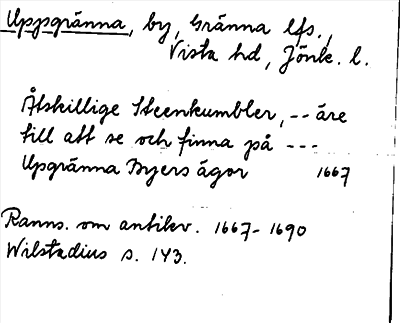 Uppgränna, by, Gränna lfs.,
Vista hd, Jönk. l.
Åtskillige Steenkumbler, -- äre
till att se och finna på ---
Upgränna Byers ägor 1667
Ranns. om antikv. 1667-1690
Wilstadius s. 143.